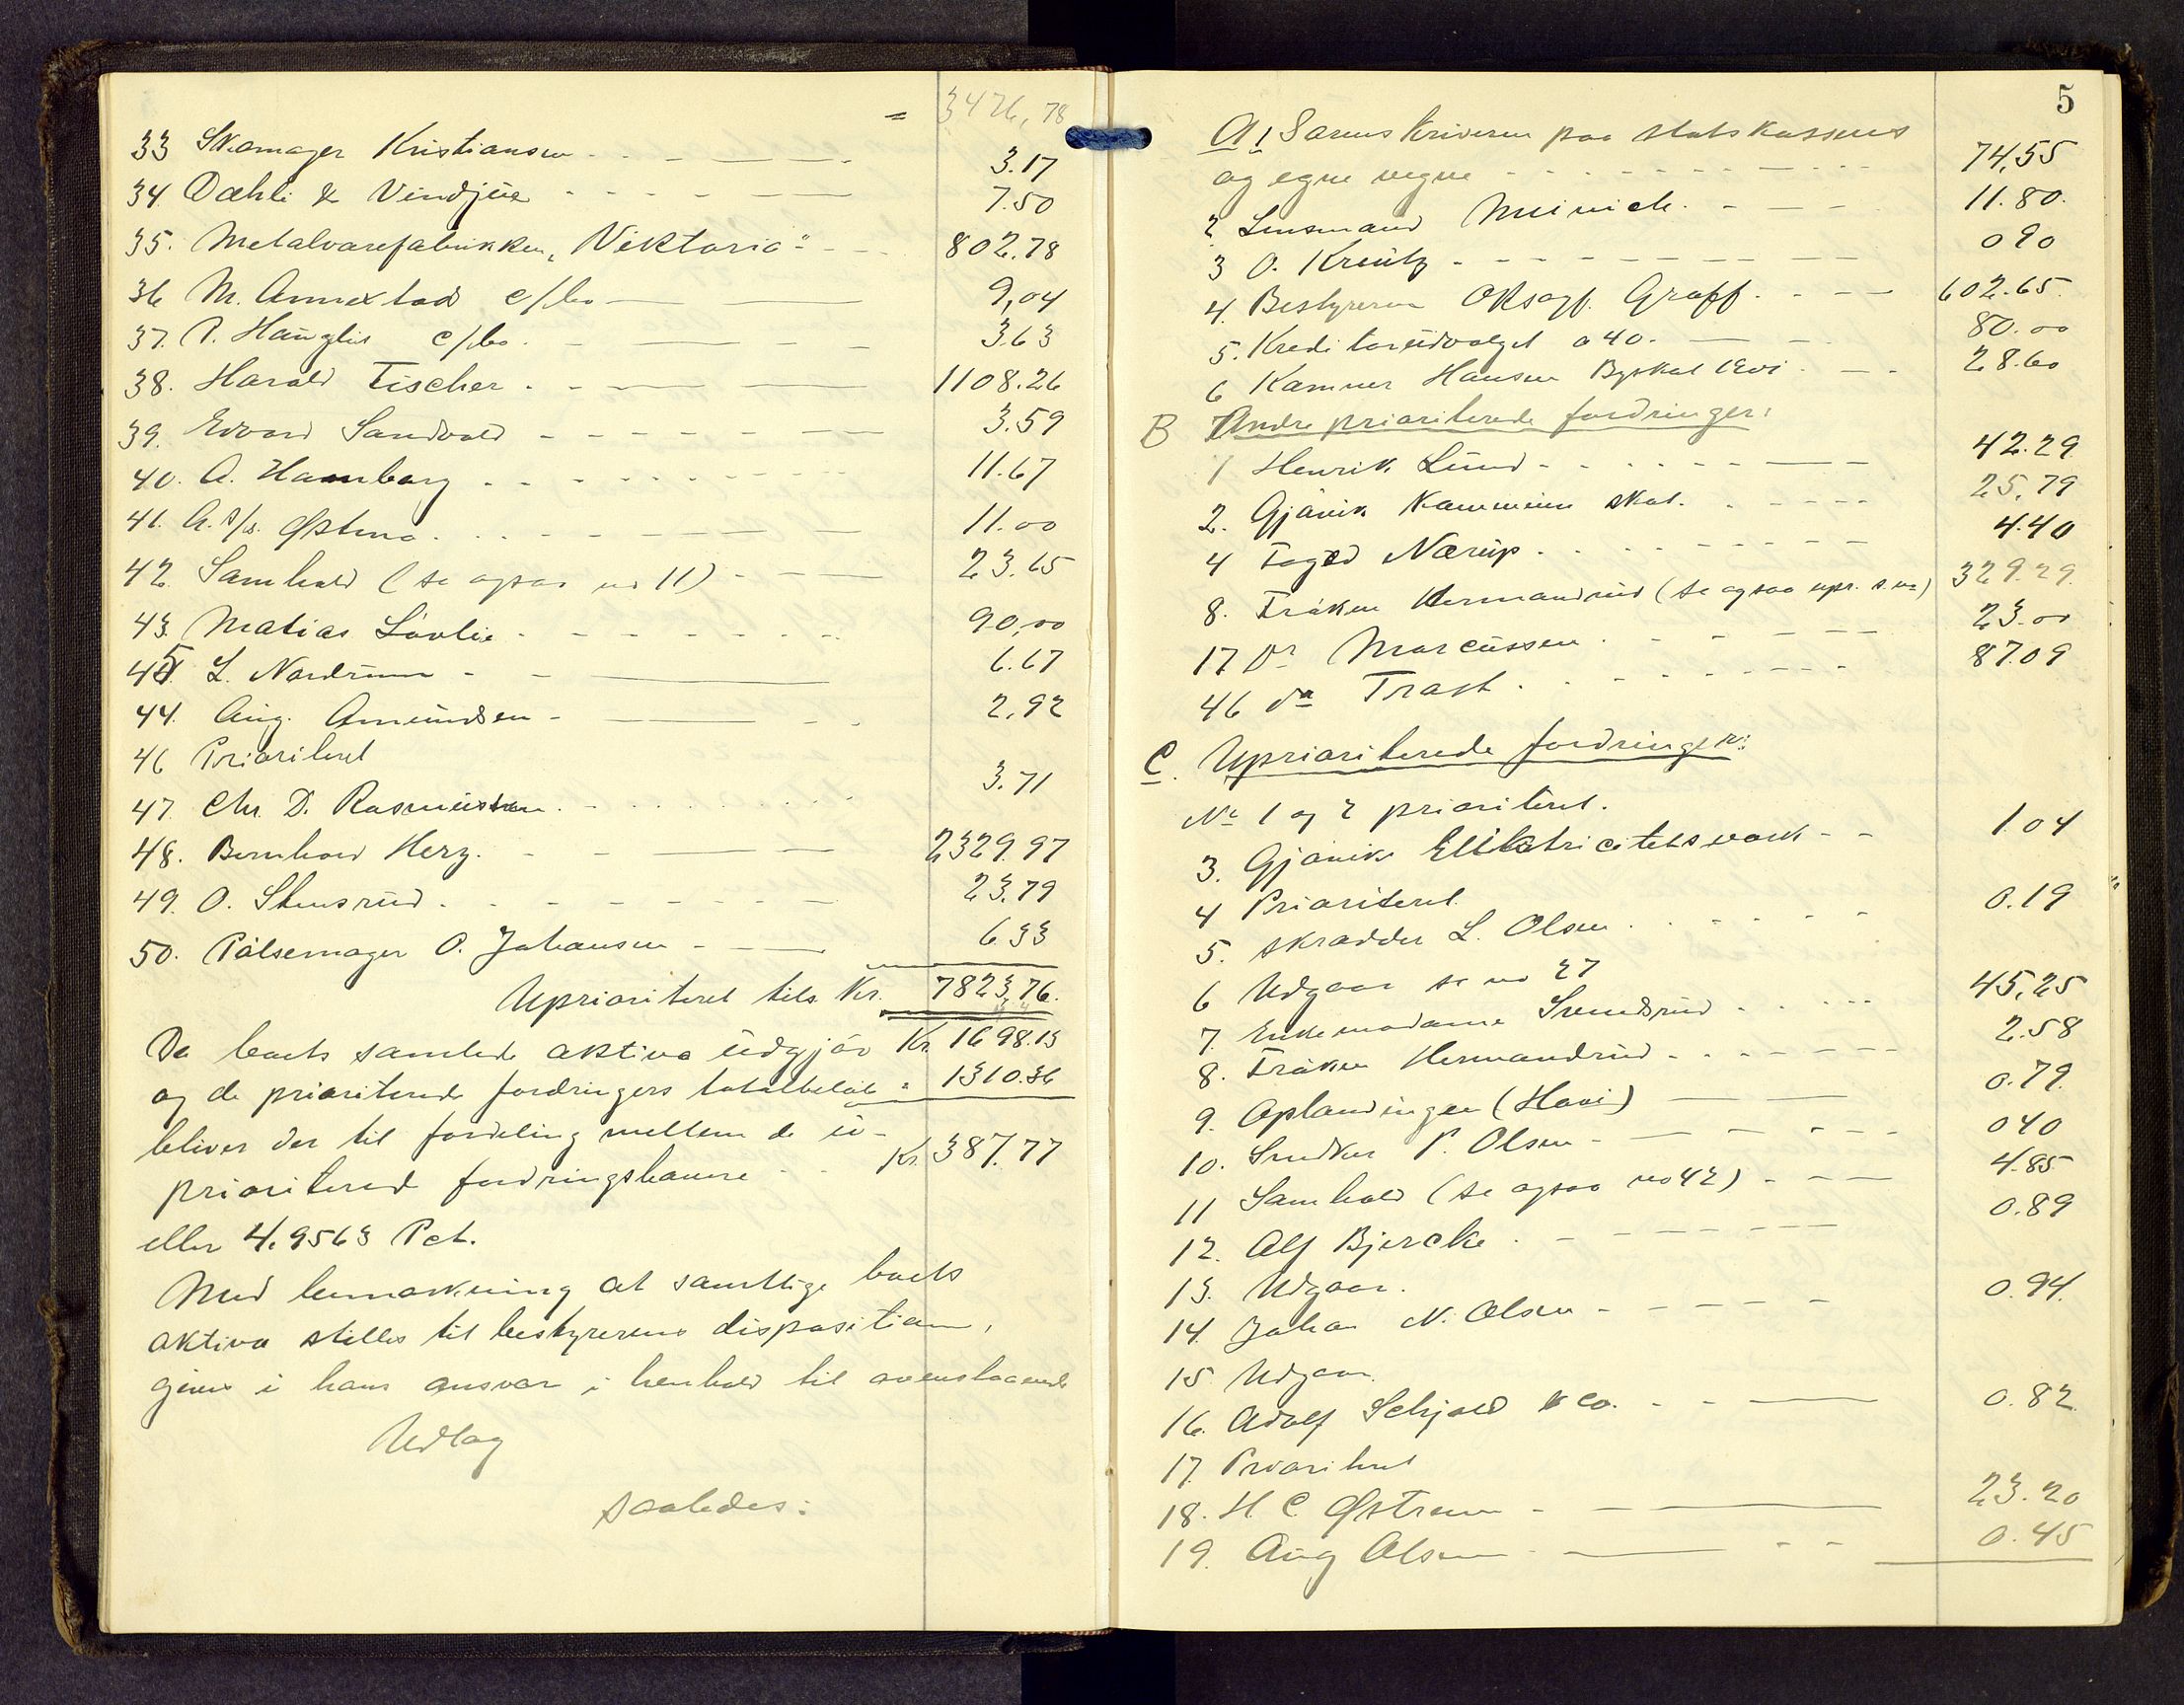 = 3476,78
33 Skomager Kristiansen 3.17
34. Dæhli & Vindjue 7.50
35. Metalvarefabrikken „Viktoria" 802.78
36 M. Annexstad c/bo 9,04
37. P. Hauglie c/bo. 3.63
38. Harald Fischer 1108.26
39. Edvard Sandvold 3.59
40. A. Hamborg 11.67
41. A. s/s. Østena 11.00
42 Samhold (se ogsaa no 11) 23.65
43. Matias Løvlie 90,00
45. L. Nordrum 6.67
44. Aug. Amundsen 2,92
46 Prioriteret
47. Chr. D. Rasmussen 3.71
48. Bernhard Herz. 2329.97
49. O. Stensrud. 23.79
50. Pølsemager O. Johansen 6.33
Uprioriteret tils Kr. 7823,76.
Da boets samlede aktiva udgjør Kr. 1698.13
og de prioriterede fordringers totalbeløb " 1310.36
bliver der til fordeling mellem de u-
prioriterede fordringshavere Kr. 387.77
eller 4.9563 Pct.
Med bemærkning at samtlige boets
aktiva stilles til bestyrerens disposition,
gives i hans ansvar i henhold til ovenstaaende
Udlæg
saaledes:
5
A 1 Sorenskriveren paa statskassens
og egne vegne 74,55
2 Lensmand Meinich. 11.80.
3 O. Kreutz 0 90
4. Bestyreren ORsagf. Graff. 602.65.
5. Kreditorudvalget a 40. 80.00
6 Kæmner Hansen Byskat 28.60
B Andre prioriterede fordringer:
1 Henrik Lund 42.29
2. Gjøvik Kommune skat. 25,79
4 Foged Nærup 4.40
8. Frøken Hermandrud (se ogsaa upr. s. no) 329.29.
17 Dr Marcussen 23.00
46 do Trast. 87.09
C. Uprioriterede fordringer:
No 1 og 2 prioriteret.
3. Gjøvik Elektricitetsverk 1.04
4 Prioriteret
5. skrædder L. Olsen 0.19
6 Udgaar se no 27
7. Enkemadame Svendsrud 45,25
8. Frøken Hermandrud 2.58
9. Oplandingen (Hovi) 0.79.
10. Snedker P. Olsen 0 40
11 Samhold (se ogsaa no 42) 4.85
12. Alf Bjercke 0.89
13. Udgaar.
14. Johan N. Olsen 0.94.
15. Udgaar.
16. Adolf Schjold & Co. 0.82
17. Prioriteret
18. H. C. Østrem 23.20
19. Aug Olsen 0.45